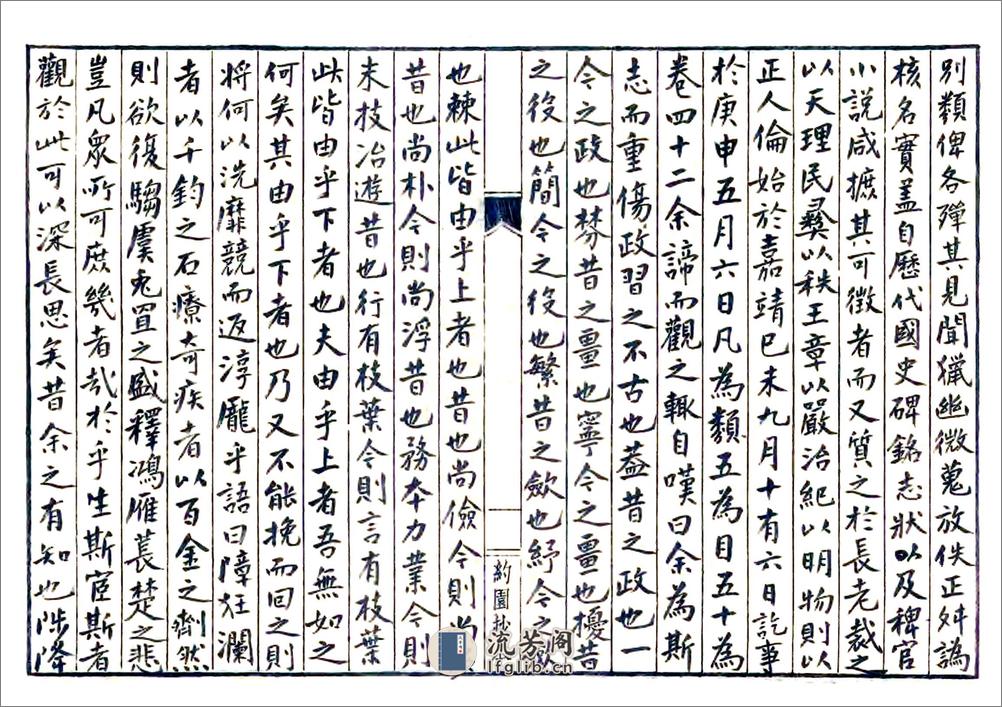 別類俾各殫其見聞獵幽微蒐放佚正舛譌
核名實蓋自歷代國史碑銘志狀以及稗官
小説咸摭其可徵者而又質之於長老裁之
以天理民彞以秩王章以嚴治紀以明物則以
正人倫始於嘉靖己未九月十有六日訖事
於庚申五月六日凡為類五為目五十為
卷四十二余諦而觀之輒自嘆曰余為斯
志而重傷政習之不古也蓋昔之政也一
今之政也棼昔之畺也寧今之畺也擾昔
之役也簡今之役也繁昔之斂也紓今之斂
也棘此皆由乎上者也昔也尚儉今則尚
昔也尚朴今則尚浮昔也務本力業今則
末技冶遊昔也行有枝葉今則言有枝葉
此皆由乎下者也夫由乎上者吾無如之
何矣其由乎下者也乃又不能挽而回之則
將何以洗靡競而返淳龐乎語曰障狂瀾
者以千鈞之石療奇疾者以百金之劑然
則欲復騶虞兎罝之盛釋鴻雁萇楚之悲
豈凡眾所可庶幾者哉於乎生斯宦斯者
觀於此可以深長思矣昔余之有知也陟降
約園抄
流芳阁
lfglib.cn